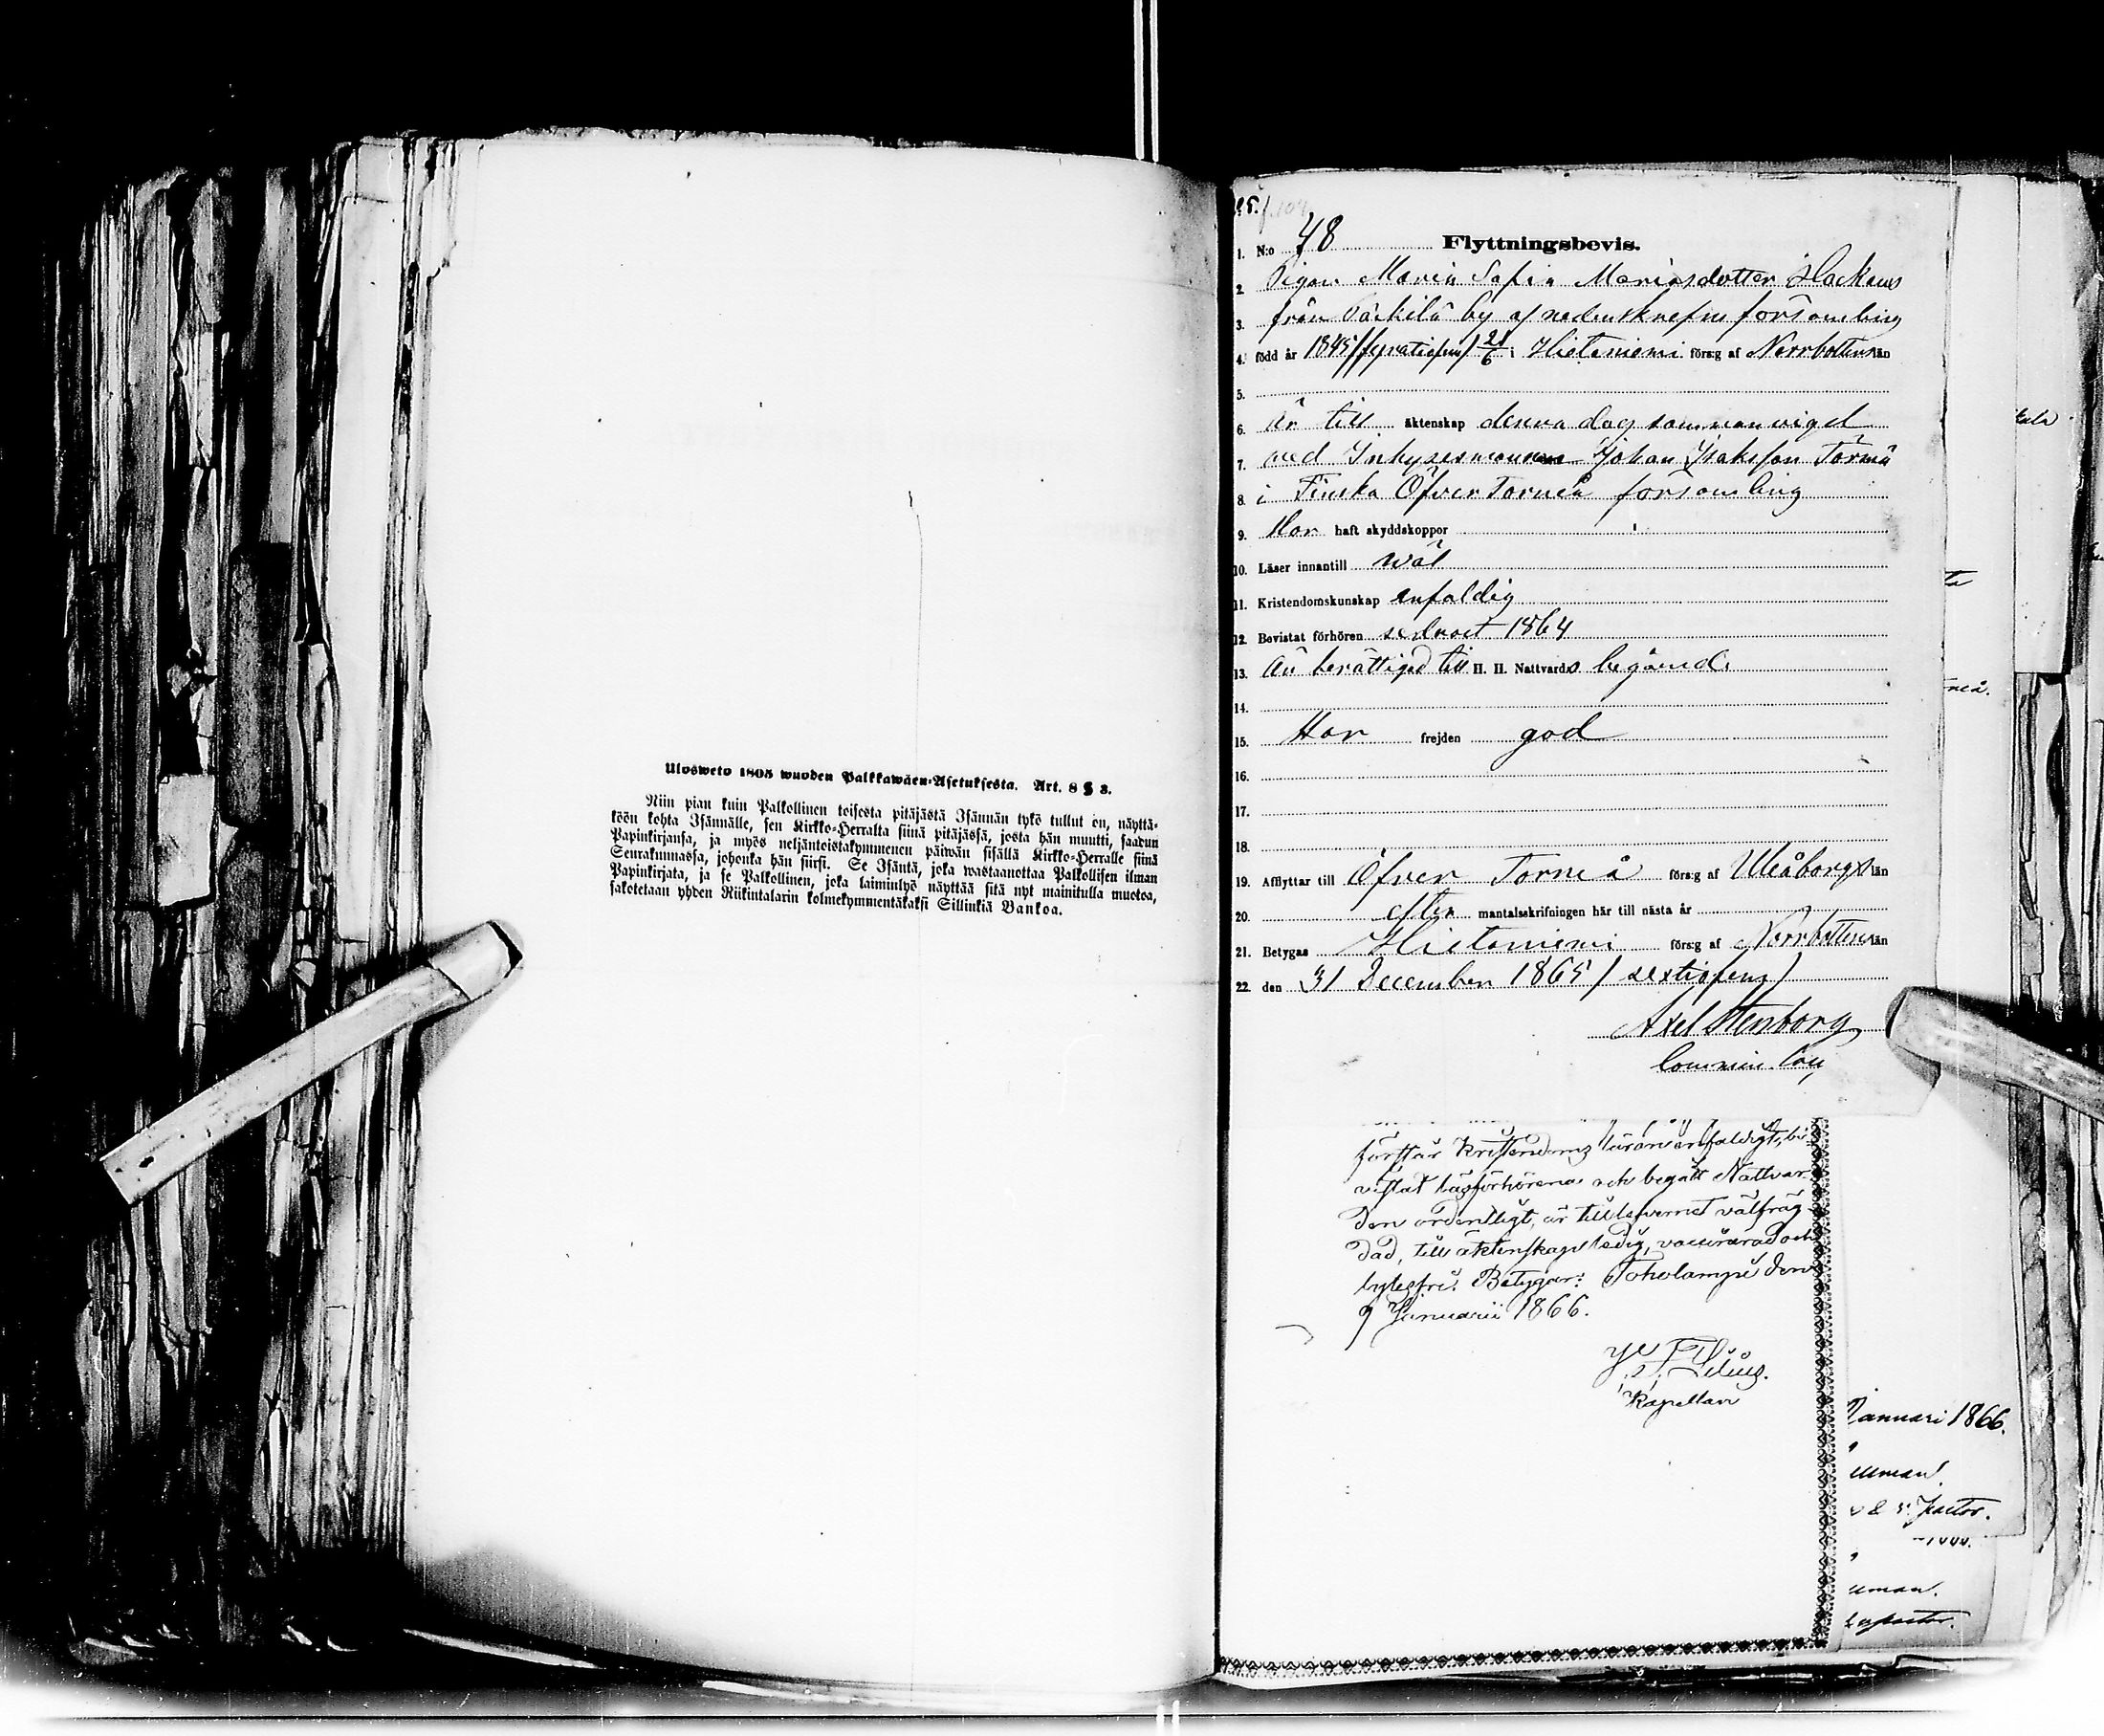 Ulosweto 1805 wuoden Palkkawäen-Asetuksesta. Art. 8 § 3.
Niin pian kuin Palkollinen toisesta pitäjästä Isännän tykö tullut on, näyttä-
köön kohta Isännälle, sen Kirkko-Herralta siinä pitäjässä, josta hän muutti, saadun
Papinkirjansa, ja myös neljäntoistakymmenen päiwän sisällä Kirkko-Herralle siinä
Seurakunnassa, johonka hän siirsi. Se Isäntä, joka wastaanottaa Palkollisen ilman
Papinkirjata, ja se Palkollinen, joka laiminlyö näyttää sitä nyt mainitulla muotoa,
sakotetaan yhden Riikintalarin kolmekymmentäkaksi Sillinkiä Bankoa.
1. N:o 48 Flyttningsbevis.
2. Pigan Maria Sofia Mariasdotter
3. från Päckilä by af nedanskrefne församling
4. född år 1845 /fyratiofem/ 21/6 i Hietaniemi förs:g af Norrbottens län
5.
6. är till äktenskap denna dag sammanvigd
7. med Inhysesmannen Johan Isaksson Törmä
8. i Finska Öfver Torneå församling
9. Har haft skyddskoppor
10. Läser innantill wäl
11. Kristendomskunskap enfaldig
12. Bevistat förhören sednast 1864
13. är berättigad till H. H. Nattvards begående
14.
15. Har frejden god
16.
17.
18.
19. Afflyttar till Öfver Torneå förs:g af Uleåborgs län
20. efter mantalsskrifningen här till nästa år
21. Betygas Hietaniemi förs:g af Norrbottens län
22. den 31 December 1865 / sextiofem /
Axel Stenborg
Commin.
förstår Kristendoms läran enfaldigt, bi-
vistat läsförhören och begått Nattvar-
den ordentligt, är till lefvernet välfräg-
dad, till äktenskap ledig, vaccinerad och
lytesfri. Betygar: Toholampi den
9 Januarii 1866.
Kapellan
Januari 1866.